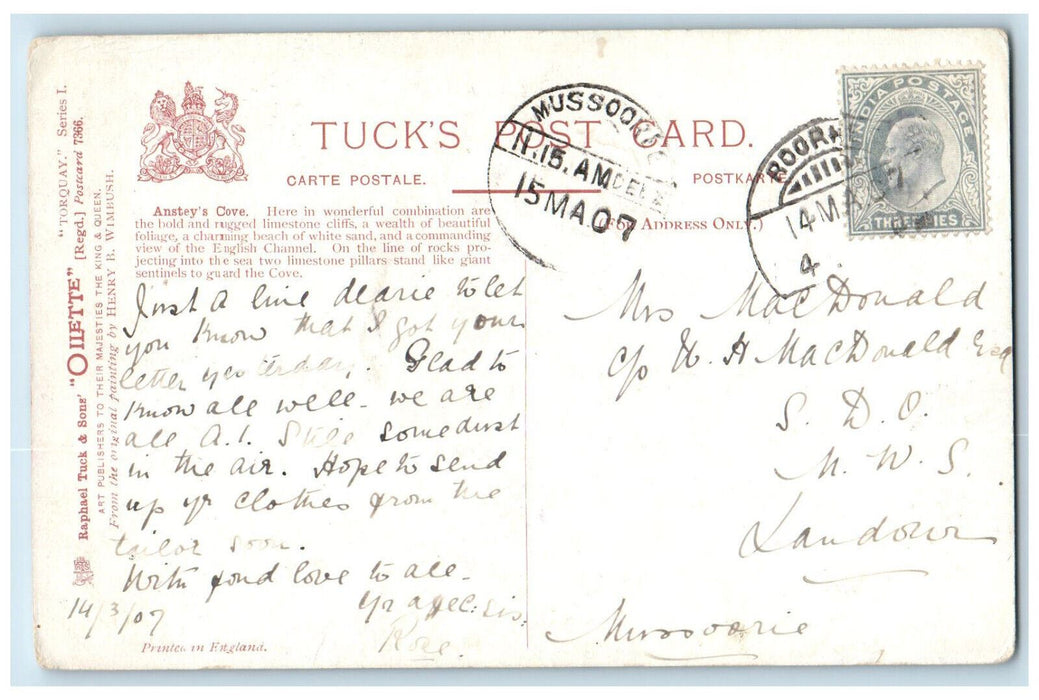 "TORQUAY." Series I.
Raphael Tuck & Sons' "OILETTE" [Regd.] Postcard 7366.
ART PUBLISHERS TO THEIR MAJESTIES THE KING & QUEEN.
From the original painting by HENRY B. WIMBUSH.
TUCK'S POST CARD.
CARTE POSTALE.
POSTKARTE
(FOR ADDRESS ONLY.)
Anstey's Cove. Here in wonderful combination are
the bold and rugged limestone cliffs, a wealth of beautiful
foliage, a charming beach of white sand, and a commanding
view of the English Channel. On the line of rocks pro-
jecting into the sea two limestone pillars stand like giant
sentinels to guard the Cove.
Just a line dearie to let
you know that I got your
letter yesterday. Glad to
know all well - we are
all A.1. Still some dust
in the air. Hope to send
up yr clothes from the
tailor soon.
With fond love to all -
Yr affec: sis:
Rose.
14/3/07
Printed in England.
MUSSOORIE
11.15.AM DELY
15MA07
ROORK
14MA07
4
INDIA POSTAGE
THREE PIES
Mrs MacDonald
c/o W. H MacDonald Esq
S. D. O.
M. W. S.
Landour
Mussoorie